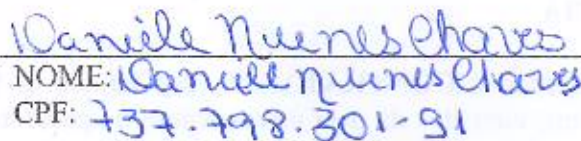 Daniele Nunes Chaves
NOME: Daniele Nunes Chaves
CPF: 737.798.301-91